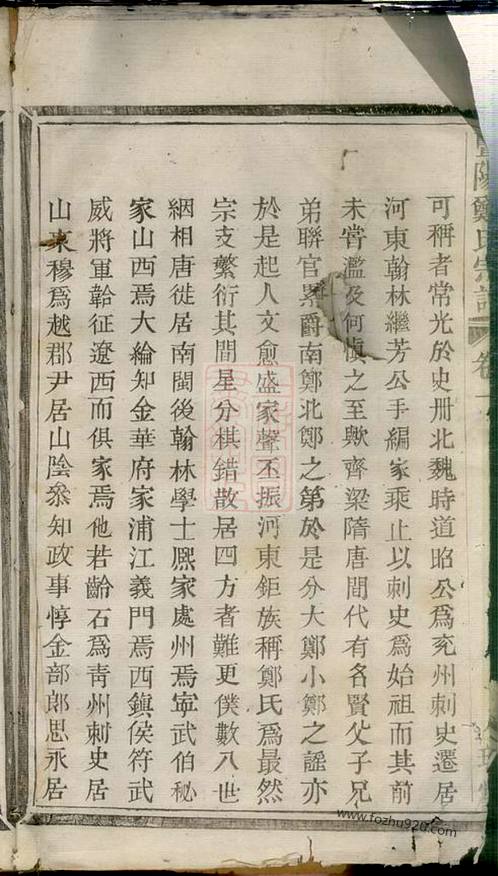 暨陽鄭氏宗譜 卷一
可稱者常光於史册北魏時道昭公為兖州刺史遷居
河東翰林繼芳公手編家乘止以刺史為始祖而其前
未甞濫及何慎之至歟齊梁隋唐間代有名賢父子兄
弟聯官累爵南鄭北鄭之第於是分大鄭小鄭之謡亦
於是起人文愈盛家聲丕振河東鉅族稱鄭氏為最然
宗支蘩衍其間星分棋錯散居四方者難更僕數八世
絪相唐徙居南閩後翰林學士熈家處州焉寜武伯秘
家山西焉大綸知金華府家浦江義門焉西鎮侯符武
威將軍韐征遼西而俱家焉他若齡石為青州刺史居
山東穆為越郡尹居山陰叅知政事惇金部郎思永居
www.fozhu920.com